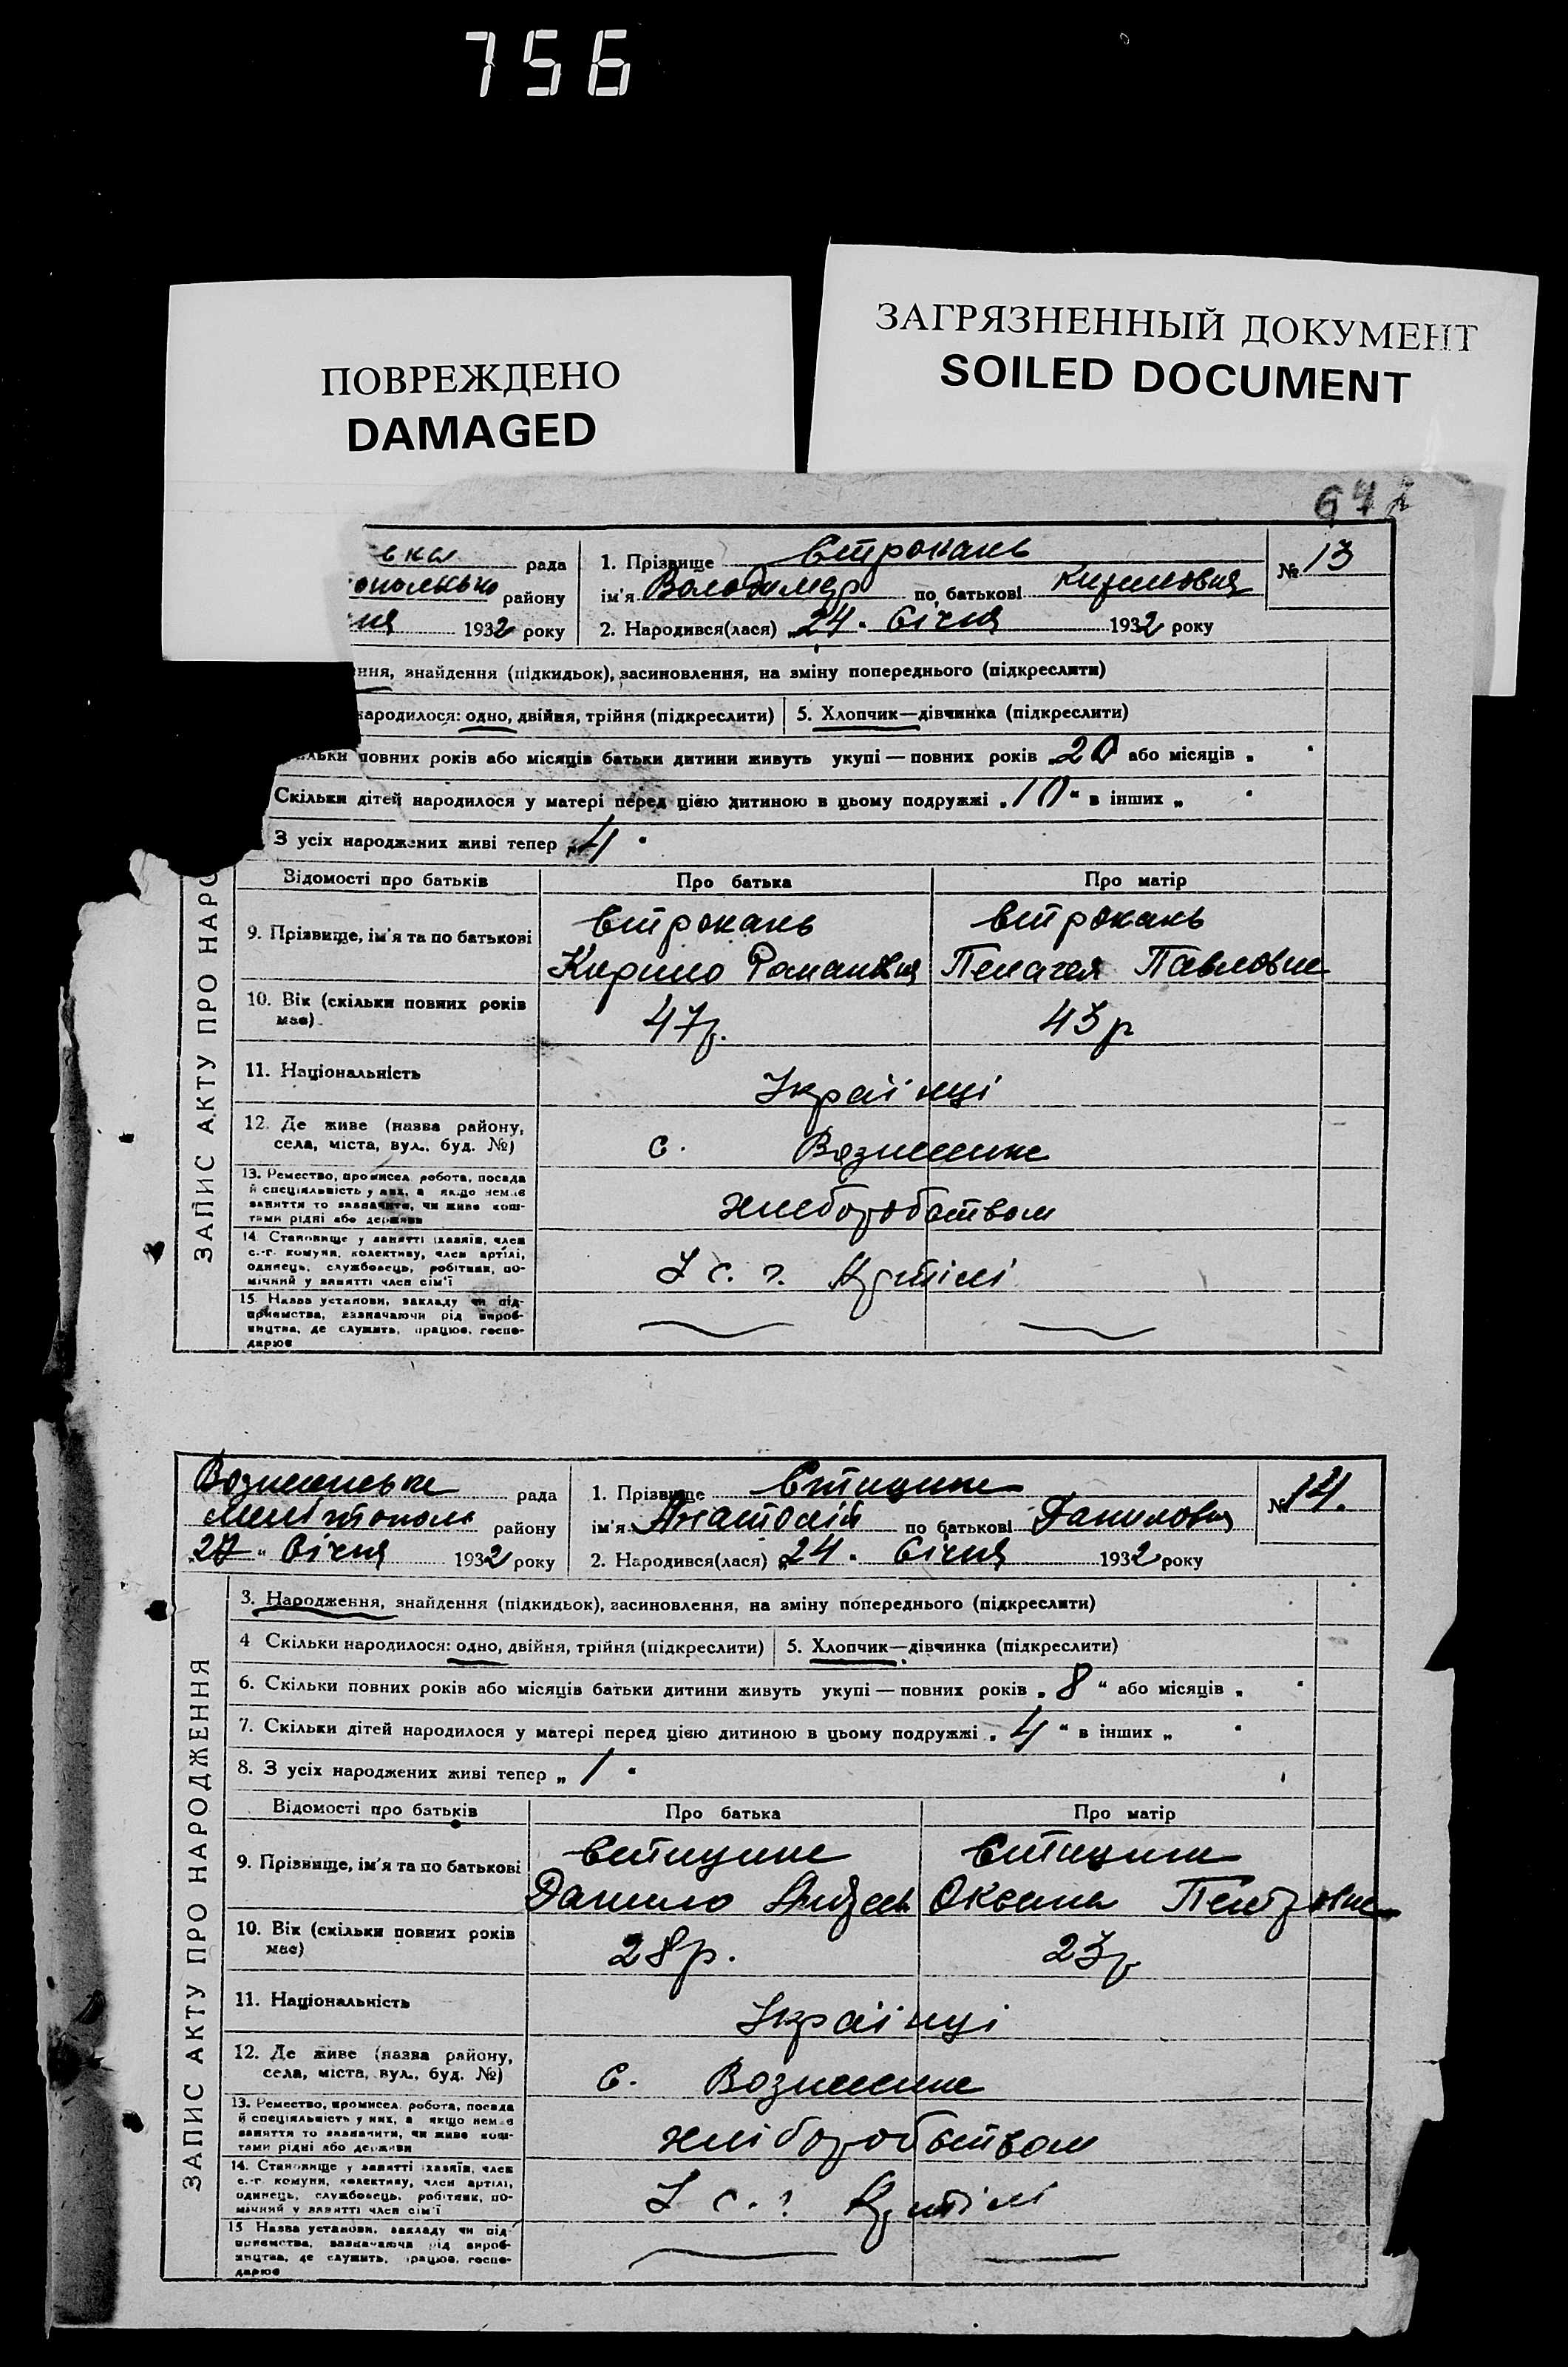 756
ПОВРЕЖДЕНО
DAMAGED
ЗАГРЯЗНЕННЫЙ ДОКУМЕНТ
SOILED DOCUMENT
рада
району
1932 року
1. Прізвище Строкань
ім'я Володимер по батькові Кирилович
2. Народився(лася) „24" Січня 1932 року
№ 13
ння, знайдення (підкидьок), засиновлення, на зміну попереднього (підкреслити)
народилося: одно, двійня, трійня (підкреслити)
5. Хлопчик—дівчинка (підкреслити)
льки повних років або місяців батьки дитини живуть укупі — повних років „20 або місяців „
Скільки дітей народилося у матері перед цією дитиною в цьому подружжі „10" в інших „ "
З усіх народжених живі тепер „4"
ЗАПИС АКТУ ПРО НАРО
Відомості про батьків
Про батька
Про матір
9. Прізвище, ім'я та по батькові
Строкань
Строкань
Кирило Романович
Пелагея Павловна
10. Вік (скільки повних років
має)
47р.
43р
11. Національність
Українці
12. Де живе (назва району,
села, міста, вул., буд. №)
с. Вознесенка
13. Ремество, промисел робота, посада
й спеціяльність у них, а якщо немає
заняття то зазначити, чи живе кош-
тами рідні або держави
хліборобством
14. Становище у занятті (хазяїн, член
с.-г. комуни, колективу, член артілі,
одинець, службовець, робітник, по-
мічний у занятті член сім'ї
У с. г. Артілі
15. Назва установи, закладу чи під-
приємства, зазначаючи рід вироб-
ництва, де служить, працює, госпо-
дарює
Вознесенська рада
Мелітополь району
1932 року
1. Прізвище Єпицина
ім'я Анатолій по батькові Данилович
2. Народився(лася) „24" Січня 1932 року
№ 14.
3. Народження, знайдення (підкидьок), засиновлення, на зміну попереднього (підкреслити)
4 Скільки народилося: одно, двійня, трійня (підкреслити)
5. Хлопчик—дівчинка (підкреслити)
6. Скільки повних років або місяців батьки дитини живуть укупі — повних років „8" або місяців „ "
7. Скільки дітей народилося у матері перед цією дитиною в цьому подружжі „4" в інших „ "
8. З усіх народжених живі тепер „1"
ЗАПИС АКТУ ПРО НАРОДЖЕННЯ
Відомості про батьків
Про батька
Про матір
9. Прізвище, ім'я та по батькові
Данило
Оксана Петровна
10. Вік (скільки повних років
має)
28р.
23р
11. Національність
Українці
12. Де живе (назва району,
села, міста, вул., буд. №)
с. Вознесенка
13. Ремество, промисел робота, посада
й спеціяльність у них, а якщо немає
заняття то зазначити, чи живе кош-
тами рідні або держави
хліборобством
14. Становище у занятті (хазяїн, член
с.-г. комуни, колективу, член артілі,
одинець, службовець, робітник, по-
мічний у занятті член сім'ї
У с. г Артілі
15 Назва установи, закладу чи під-
приємства, зазначаючи рід вироб-
ництва, де служить, працює, госпо-
дарює